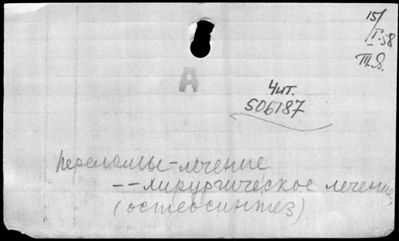 15/
I-58
Т.Я.
А
Чит.
506187
переломы-лечение
--хирургическое лечение,
(остеосинтез)